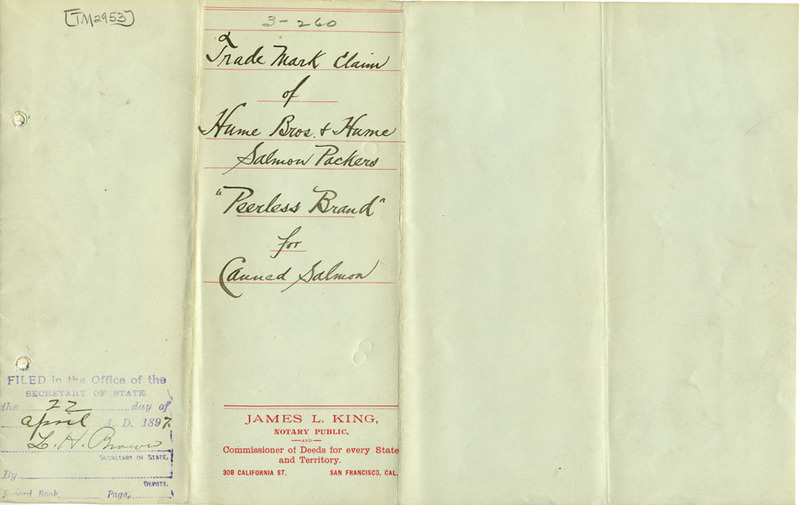 [TM2953]
3-260
Trade Mark Claim
of
Hume Bros. & Hume
Salmon Packers
"Peerless Brand"
for
Canned Salmon
JAMES L. KING,
NOTARY PUBLIC,
—AND—
Commissioner of Deeds for every State
and Territory.
308 CALIFORNIA ST. SAN FRANCISCO, CAL.
FILED in the Office of the
SECRETARY OF STATE.
the 22 day of
April A. D. 1897.
L. H. Brown
SECRETARY OF STATE.
By
DEPUTY.
Record Book Page,